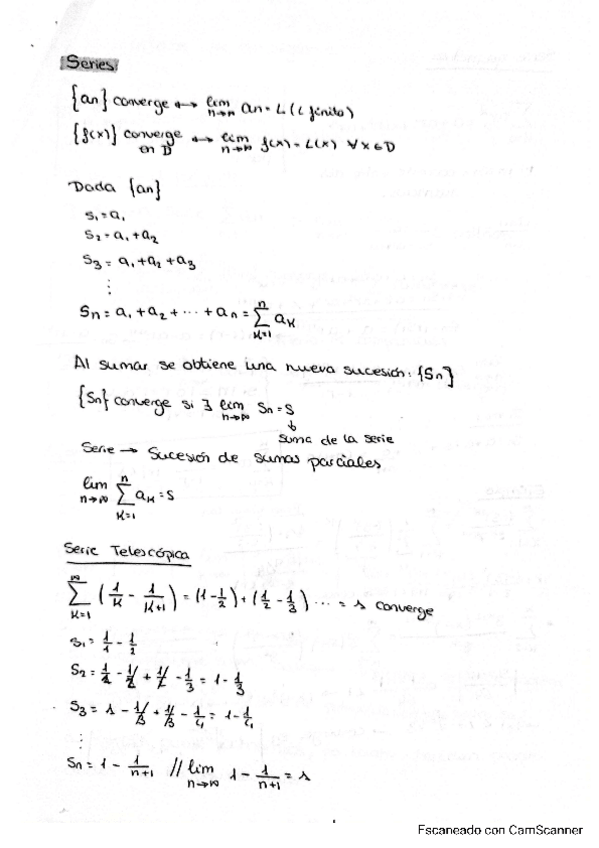 Series
{an} converge ↔ lim n→∞ an = L (L finito)
{f(x)} converge en D ↔ lim n→∞ f(x) = L(x) ∀x∈D
Dada {an}
S₁ = a₁
S₂ = a₁ + a₂
S₃ = a₁ + a₂ + a₃
⋮
Sn = a₁ + a₂ + ... + an = ∑ₖ₌₁ⁿ aₖ
Al sumar se obtiene una nueva sucesión: {Sn}
{Sn} converge si ∃ lim n→∞ Sn = S
↓
suma de la serie
Serie → Sucesión de sumas parciales
lim n→∞ ∑ₖ₌₁ⁿ aₖ = S
Serie Telescópica
∑ₖ₌₁^∞ (1/K - 1/(K+1)) = (1 - 1/2) + (1/2 - 1/3) ... = 1 converge
S₁ = 1/1 - 1/2
S₂ = 1/1 - 1/2 + 1/2 - 1/3 = 1 - 1/3
S₃ = 1 - 1/3 + 1/3 - 1/4 = 1 - 1/4
⋮
Sn = 1 - 1/(n+1) // lim n→∞ 1 - 1/(n+1) = 1
Escaneado con CamScanner